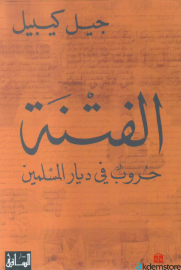 جيل كيبيل
الفتنة
حروب في ديار المسلمين
الساقي
akdemstore